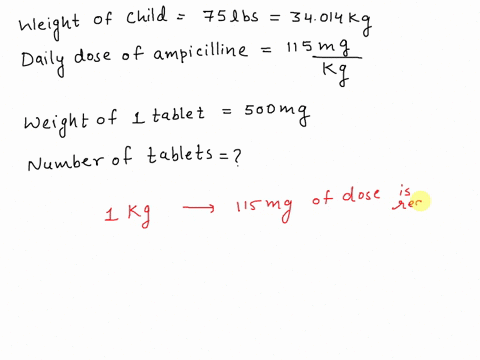 Weight of child = 75 lbs = 34.014 Kg
Daily dose of ampicilline = 115 mg/Kg
Weight of 1 tablet = 500 mg
Number of tablets = ?
1 Kg → 115 mg of dose is